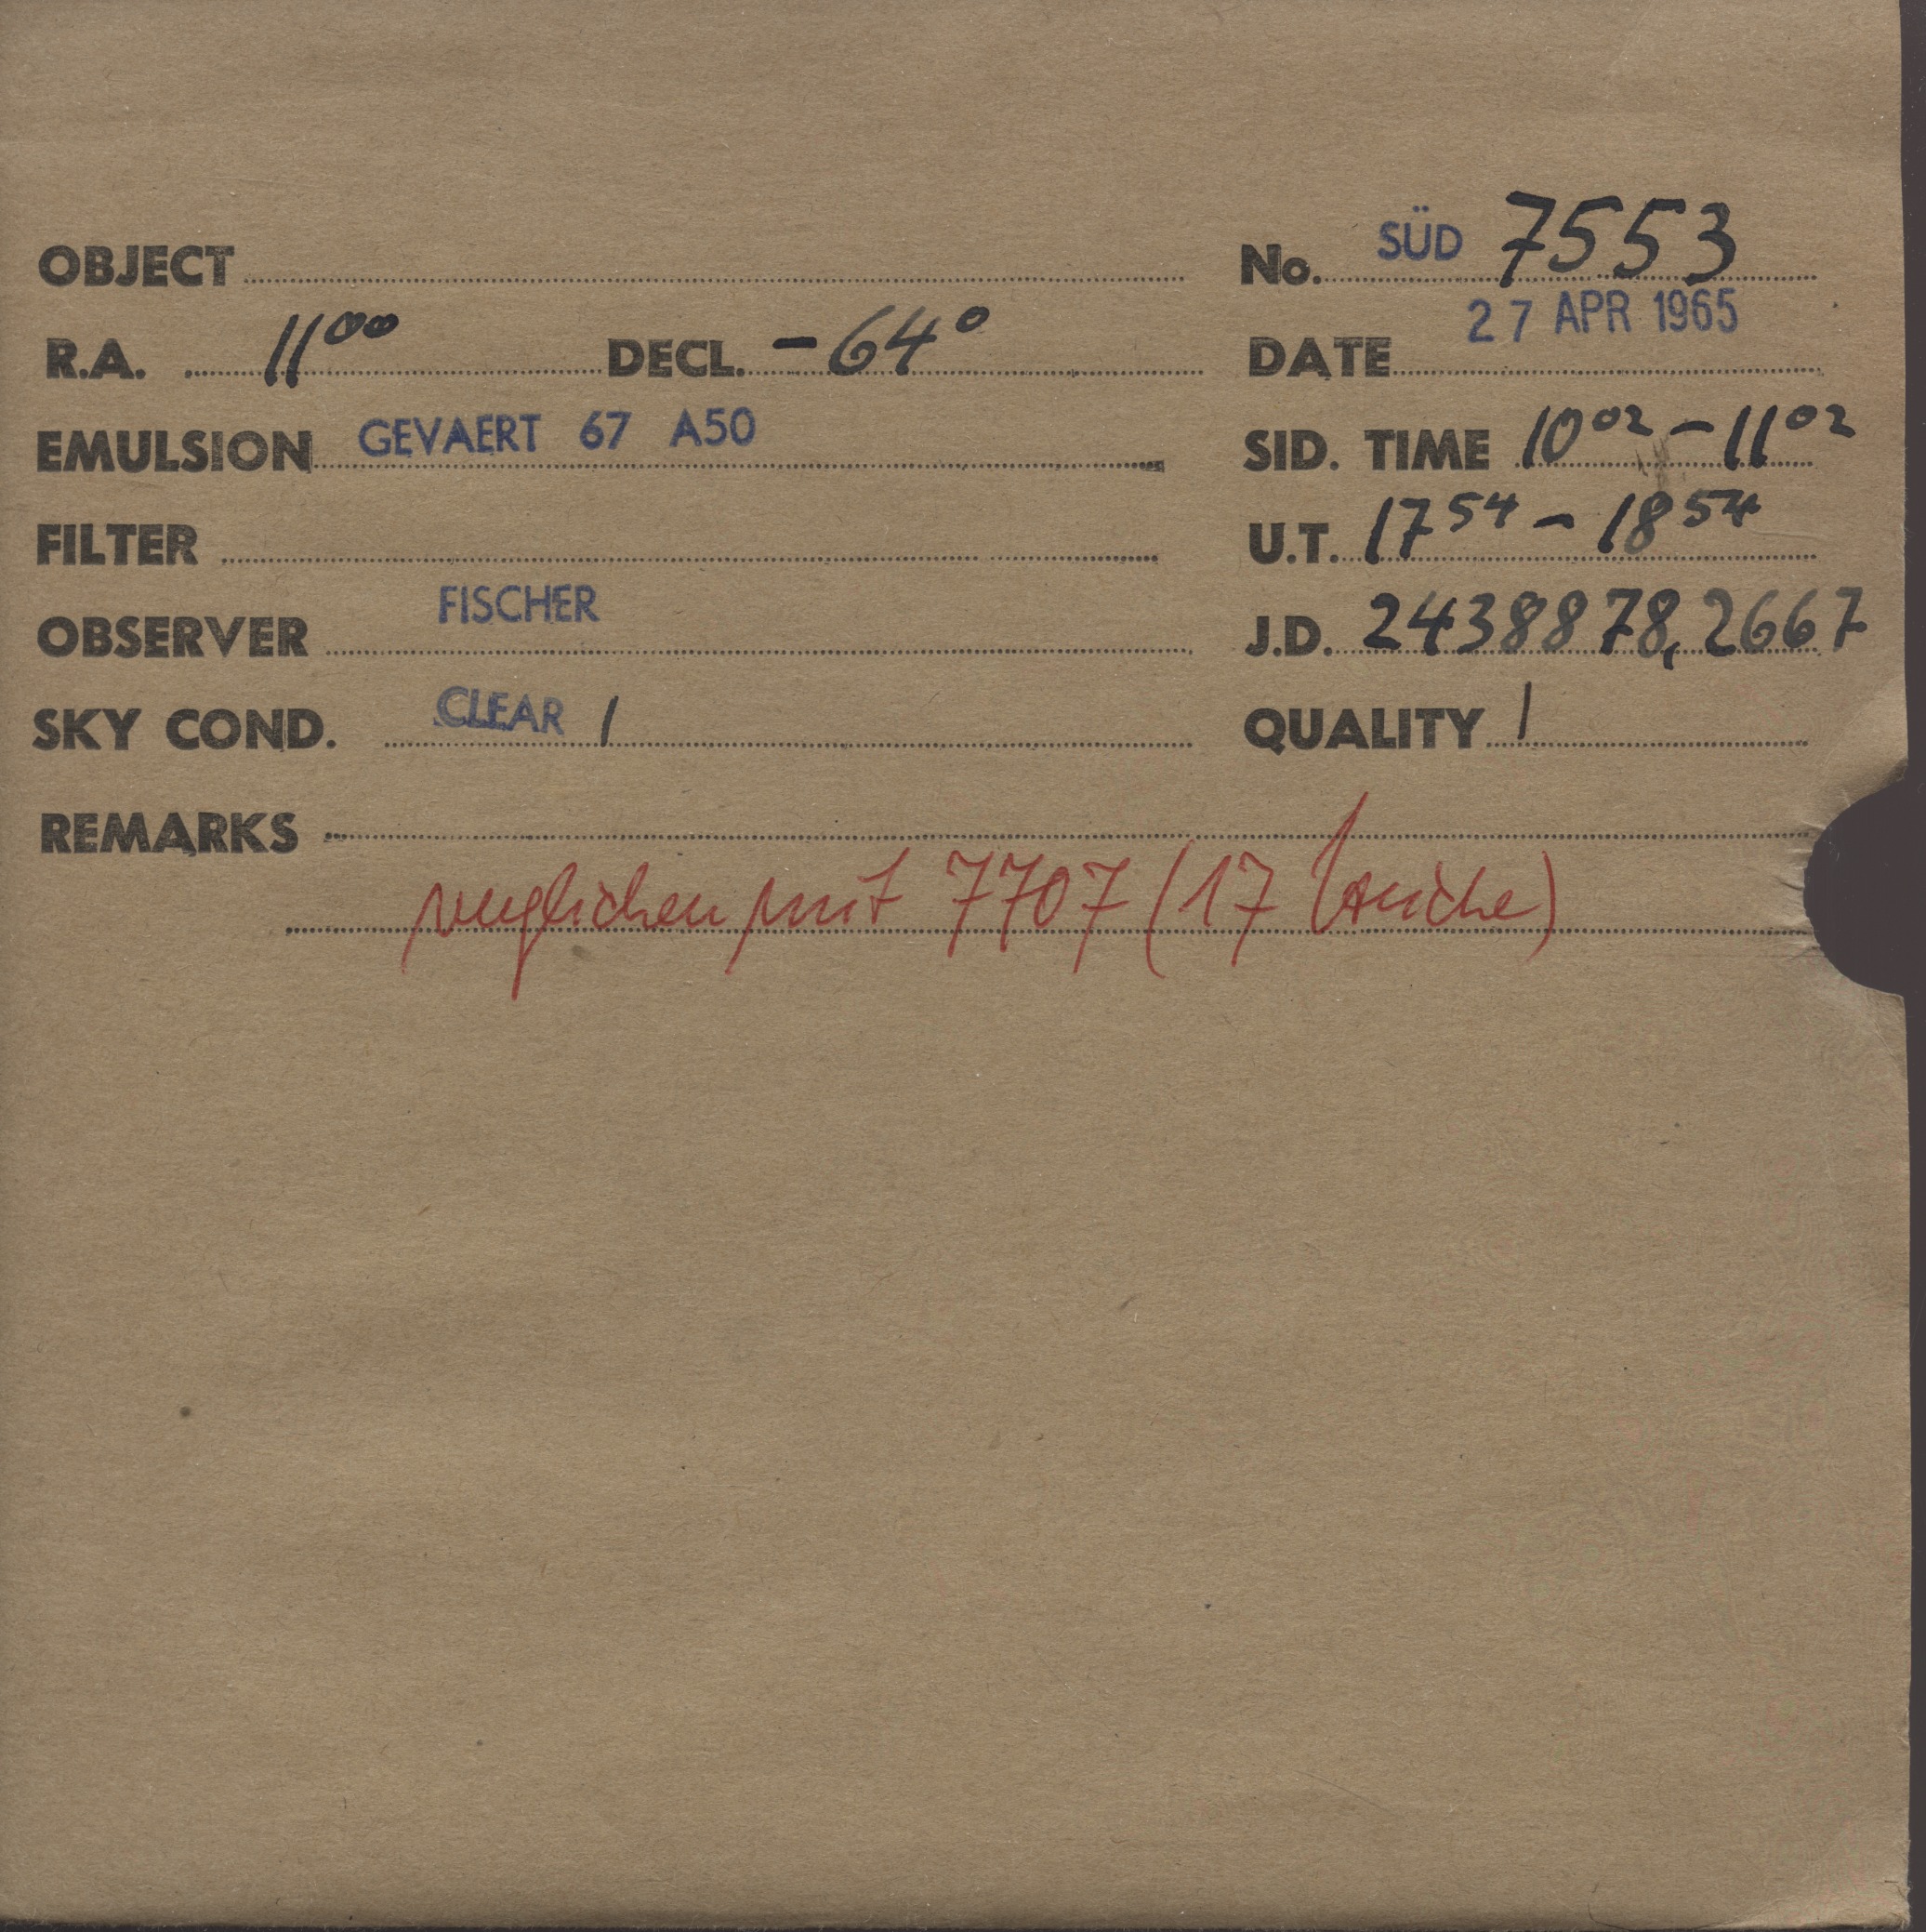 OBJECT No. SÜD 7553
R.A. 11⁰⁰ DECL. -64° DATE 27 APR 1965
EMULSION GEVAERT 67 A50 SID. TIME 10⁰² - 11⁰²
FILTER U.T. 17⁵⁴ - 18⁵⁴
OBSERVER FISCHER J.D. 2438878,2667
SKY COND. CLEAR 1 QUALITY 1
REMARKS
verglichen mit 7707 (17